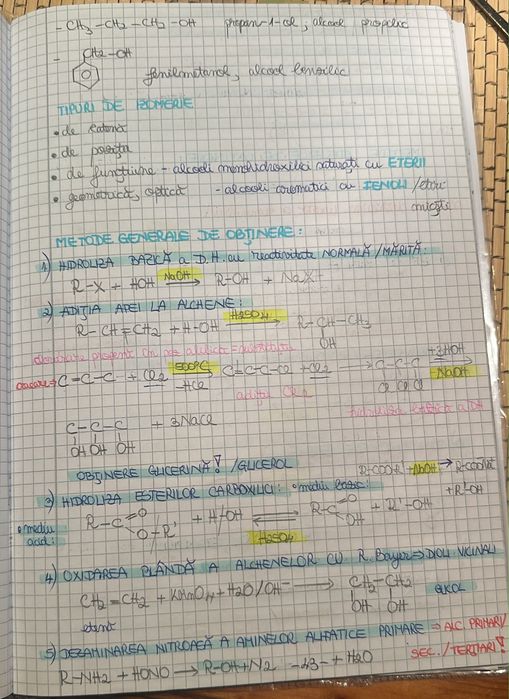 - CH3 - CH2 - CH2 - OH propan-1-ol, alcool propilic
- CH2-OH
fenilmetanol, alcool benzilic
TIPURI DE IZOMERIE
• de catenă
• de poziție
• de funcțiune - alcooli monohidroxilici saturați cu ETERII
• geometrică, optică - alcooli aromatici cu FENOLI/eteri
micști
METODE GENERALE DE OBȚINERE:
1) HIDROLIZA BAZICĂ a D.H. cu reactivitate NORMALĂ/MĂRITĂ:
R-X + HOH NaOH→ R-OH + NaX
2) ADIȚIA APEI LA ALCHENE:
R-CH=CH2 + H-OH H2SO4→ R-CH-CH3
OH
C=C-C + Cl2 500°C→ -HCl C=C-C-Cl + Cl2 → C-C-C +3HOH NaOH→
Cl Cl Cl
adiție Cl2
C-C-C + 3NaCl
OH OH OH
OBȚINERE GLICERINĂ! /GLICEROL
3) HIDROLIZA ESTERILOR CARBOXILICI: • mediu bazic: R-COOR' + NaOH → R-COONa
+ R'-OH
• mediu
acid:
R-C=O O-R' + H-OH ⇌ H2SO4 R-C=O OH + R'-OH
4) OXIDAREA BLÂNDĂ A ALCHENELOR CU R. Bayer ⇒ DIOLI VICINALI
CH2=CH2 + KMnO4 + H2O/OH- → CH2-CH2 GLICOL
OH OH
etenă
5) DEZAMINAREA NITROASĂ A AMINELOR ALIFATICE PRIMARE ⇒ ALC. PRIMARI/
SEC./TERȚIARI!
R-NH2 + HONO → R-OH + N2 + H2O